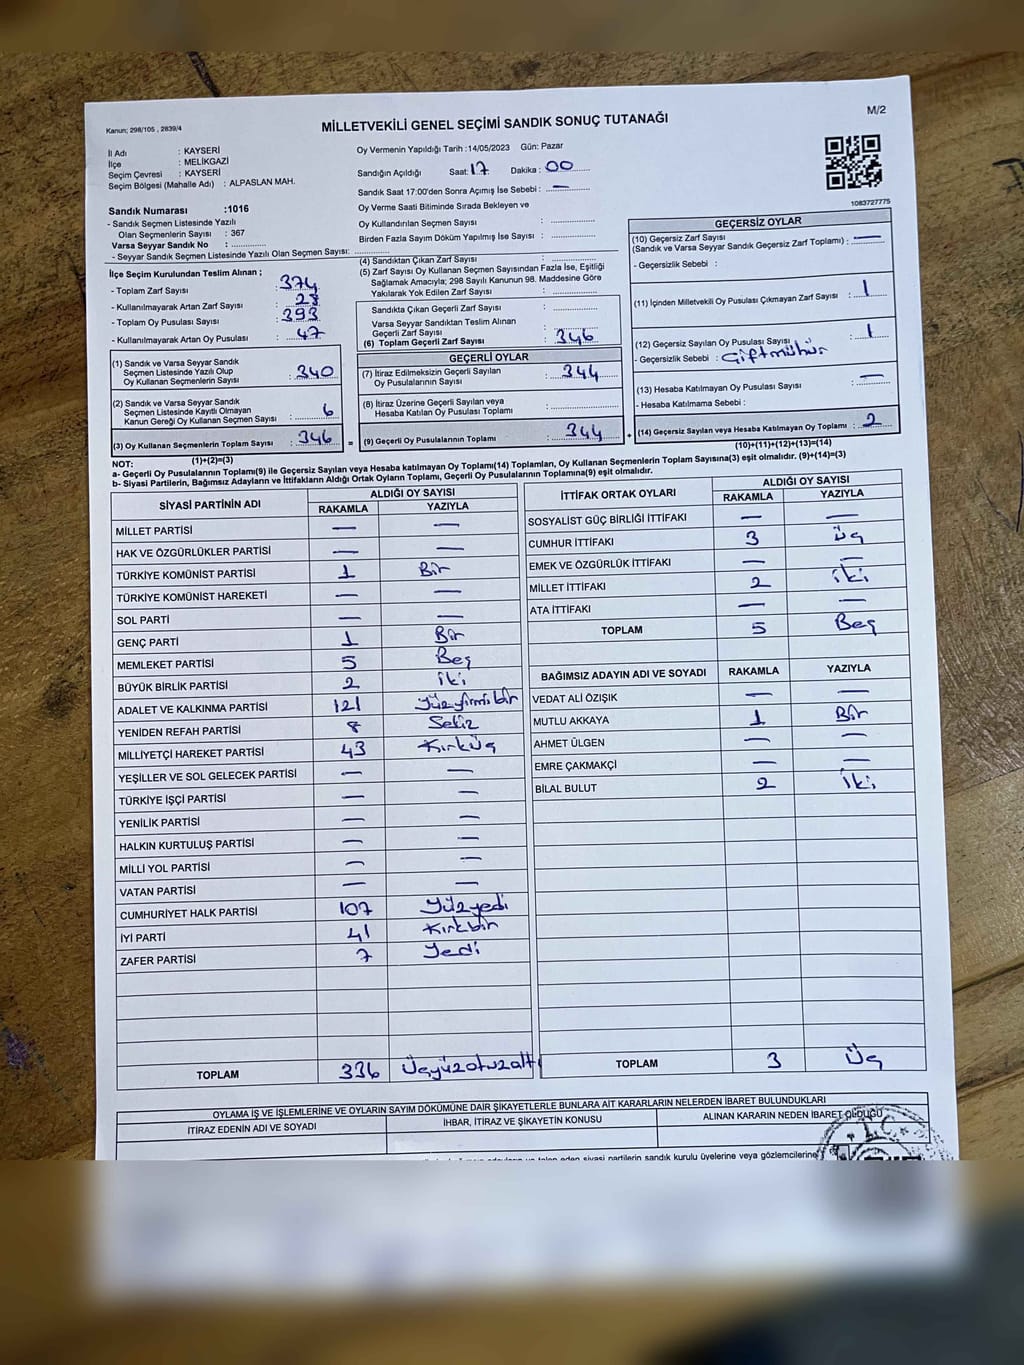 Kanun; 298/105 , 2839/4
MİLLETVEKİLİ GENEL SEÇİMİ SANDIK SONUÇ TUTANAĞI
M/2
İl Adı : KAYSERİ
İlçe : MELİKGAZİ
Seçim Çevresi : KAYSERİ
Seçim Bölgesi (Mahalle Adı) : ALPASLAN MAH.
Oy Vermenin Yapıldığı Tarih :14/05/2023 Gün: Pazar
Sandığın Açıldığı Saat: 17 Dakika : 00
Sandık Saat 17:00'den Sonra Açımış İse Sebebi : —
Oy Verme Saati Bitiminde Sırada Bekleyen ve
Oy Kullandırılan Seçmen Sayısı :
Birden Fazla Sayım Döküm Yapılmış İse Sayısı :
1083727775
Sandık Numarası :1016
- Sandık Seçmen Listesinde Yazılı
Olan Seçmenlerin Sayısı : 367
Varsa Seyyar Sandık No :
- Seyyar Sandık Seçmen Listesinde Yazılı Olan Seçmen Sayısı:
İlçe Seçim Kurulundan Teslim Alınan ;
- Toplam Zarf Sayısı : 374
- Kullanılmayarak Artan Zarf Sayısı : 28
- Toplam Oy Pusulası Sayısı : 393
- Kullanılmayarak Artan Oy Pusulası : 47
(1) Sandık ve Varsa Seyyar Sandık
Seçmen Listesinde Yazılı Olup
Oy Kullanan Seçmenlerin Sayısı : 340
(2) Sandık ve Varsa Seyyar Sandık
Seçmen Listesinde Kayıtlı Olmayan
Kanun Gereği Oy Kullanan Seçmen Sayısı : 6
(3) Oy Kullanan Seçmenlerin Toplam Sayısı : 346
(1)+(2)=(3)
(4) Sandıktan Çıkan Zarf Sayısı :
(5) Zarf Sayısı Oy Kullanan Seçmen Sayısından Fazla İse, Eşitliği
Sağlamak Amacıyla; 298 Sayılı Kanunun 98. Maddesine Göre
Yakılarak Yok Edilen Zarf Sayısı :
Sandıkta Çıkan Geçerli Zarf Sayısı :
Varsa Seyyar Sandıktan Teslim Alınan
Geçerli Zarf Sayısı :
(6) Toplam Geçerli Zarf Sayısı : 346
GEÇERLİ OYLAR
(7) İtiraz Edilmeksizin Geçerli Sayılan
Oy Pusulalarının Sayısı : 344
(8) İtiraz Üzerine Geçerli Sayılan veya
Hesaba Katılan Oy Pusulası Toplamı :
= (9) Geçerli Oy Pusulalarının Toplamı : 344 +
GEÇERSİZ OYLAR
(10) Geçersiz Zarf Sayısı
(Sandık ve Varsa Seyyar Sandık Geçersiz Zarf Toplamı) : —
- Geçersizlik Sebebi :
(11) İçinden Milletvekili Oy Pusulası Çıkmayan Zarf Sayısı : 1
(12) Geçersiz Sayılan Oy Pusulası Sayısı : 1
- Geçersizlik Sebebi : Çiftmühür
(13) Hesaba Katılmayan Oy Pusulası Sayısı : —
- Hesaba Katılmama Sebebi :
(14) Geçersiz Sayılan veya Hesaba Katılmayan Oy Toplamı : 2
(10)+(11)+(12)+(13)=(14)
NOT:
a- Geçerli Oy Pusulalarının Toplamı(9) ile Geçersiz Sayılan veya Hesaba katılmayan Oy Toplamı(14) Toplamları, Oy Kullanan Seçmenlerin Toplam Sayısına(3) eşit olmalıdır. (9)+(14)=(3)
b- Siyasi Partilerin, Bağımsız Adayların ve İttifakların Aldığı Ortak Oyların Toplamı, Geçerli Oy Pusulalarının Toplamına(9) eşit olmalıdır.
SİYASİ PARTİNİN ADI ALDIĞI OY SAYISI
RAKAMLA YAZIYLA
MİLLET PARTİSİ — —
HAK VE ÖZGÜRLÜKLER PARTİSİ — —
TÜRKİYE KOMÜNİST PARTİSİ 1 Bir
TÜRKİYE KOMÜNİST HAREKETİ — —
SOL PARTİ — —
GENÇ PARTİ 1 Bir
MEMLEKET PARTİSİ 5 Beş
BÜYÜK BİRLİK PARTİSİ 2 İki
ADALET VE KALKINMA PARTİSİ 121 Yüzyirmibir
YENİDEN REFAH PARTİSİ 8 Sekiz
MİLLİYETÇİ HAREKET PARTİSİ 43 Kırküç
YEŞİLLER VE SOL GELECEK PARTİSİ — —
TÜRKİYE İŞÇİ PARTİSİ — —
YENİLİK PARTİSİ — —
HALKIN KURTULUŞ PARTİSİ — —
MİLLİ YOL PARTİSİ — —
VATAN PARTİSİ — —
CUMHURİYET HALK PARTİSİ 107 Yüzyedi
İYİ PARTİ 41 Kırkbir
ZAFER PARTİSİ 7 Yedi
TOPLAM 336 Üçyüzotuzaltı
İTTİFAK ORTAK OYLARI ALDIĞI OY SAYISI
RAKAMLA YAZIYLA
SOSYALİST GÜÇ BİRLİĞİ İTTİFAKI — —
CUMHUR İTTİFAKI 3 Üç
EMEK VE ÖZGÜRLÜK İTTİFAKI — —
MİLLET İTTİFAKI 2 İki
ATA İTTİFAKI — —
TOPLAM 5 Beş
BAĞIMSIZ ADAYIN ADI VE SOYADI RAKAMLA YAZIYLA
VEDAT ALİ ÖZIŞIK — —
MUTLU AKKAYA 1 Bir
AHMET ÜLGEN — —
EMRE ÇAKMAKÇİ — —
BİLAL BULUT 2 İki
TOPLAM 3 Üç
OYLAMA İŞ VE İŞLEMLERİNE VE OYLARIN SAYIM DÖKÜMÜNE DAİR ŞİKAYETLERLE BUNLARA AİT KARARLARIN NELERDEN İBARET BULUNDUKLARI
İTİRAZ EDENİN ADI VE SOYADI İHBAR, İTİRAZ VE ŞİKAYETİN KONUSU ALINAN KARARIN NEDEN İBARET OLDUĞU
T.C.
siyasi partilerin sandık kurulu üyelerine veya gözlemcilerine